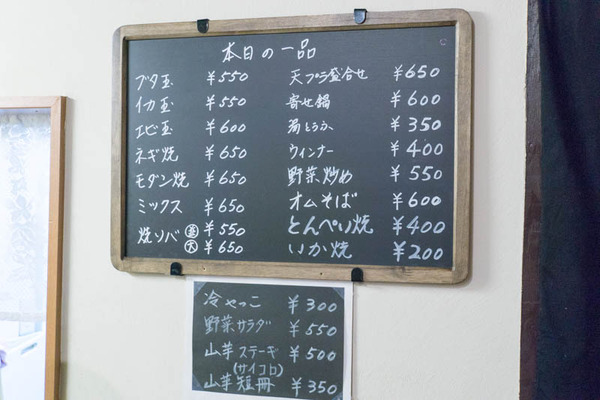 本日の一品
ブタ玉 ¥550
イカ玉 ¥550
エビ玉 ¥600
ネギ焼 ¥650
モダン焼 ¥650
ミックス ¥650
焼ソバ 並 ¥550
大 ¥650
天プラ盛合せ ¥650
寄せ鍋 ¥600
湯とうふ ¥350
ウィンナー ¥400
野菜炒め ¥550
オムそば ¥600
とんぺい焼 ¥400
いか焼 ¥200
冷やっこ ¥300
野菜サラダ ¥550
山芋ステーキ ¥500
(サイコロ)
山芋短冊 ¥350